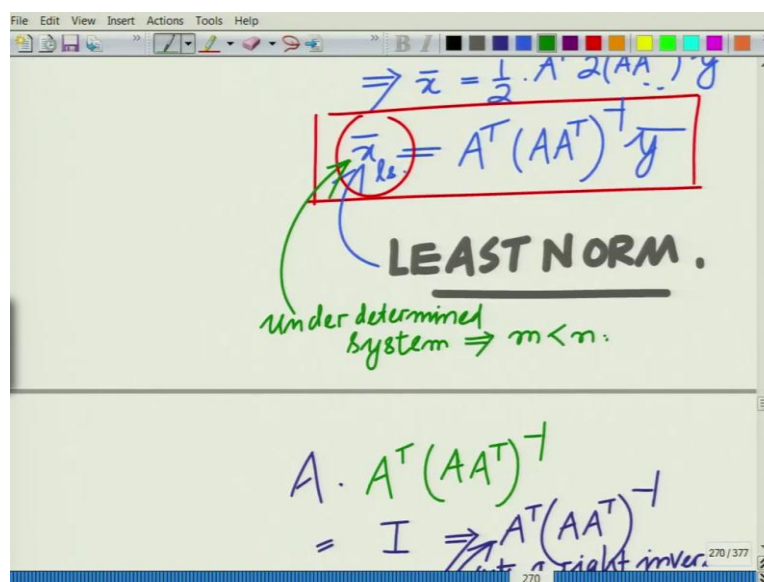 File Edit View Insert Actions Tools Help
B I
⇒ x̄ = 1/2 · Aᵀ 2(AAᵀ)⁻¹ ȳ
x̄ₗₛ = Aᵀ(AAᵀ)⁻¹ ȳ
LEAST NORM.
under determined
system ⇒ m<n.
A · Aᵀ(AAᵀ)⁻¹
= I ⇒ Aᵀ(AAᵀ)⁻¹
right inver.
270/377
270